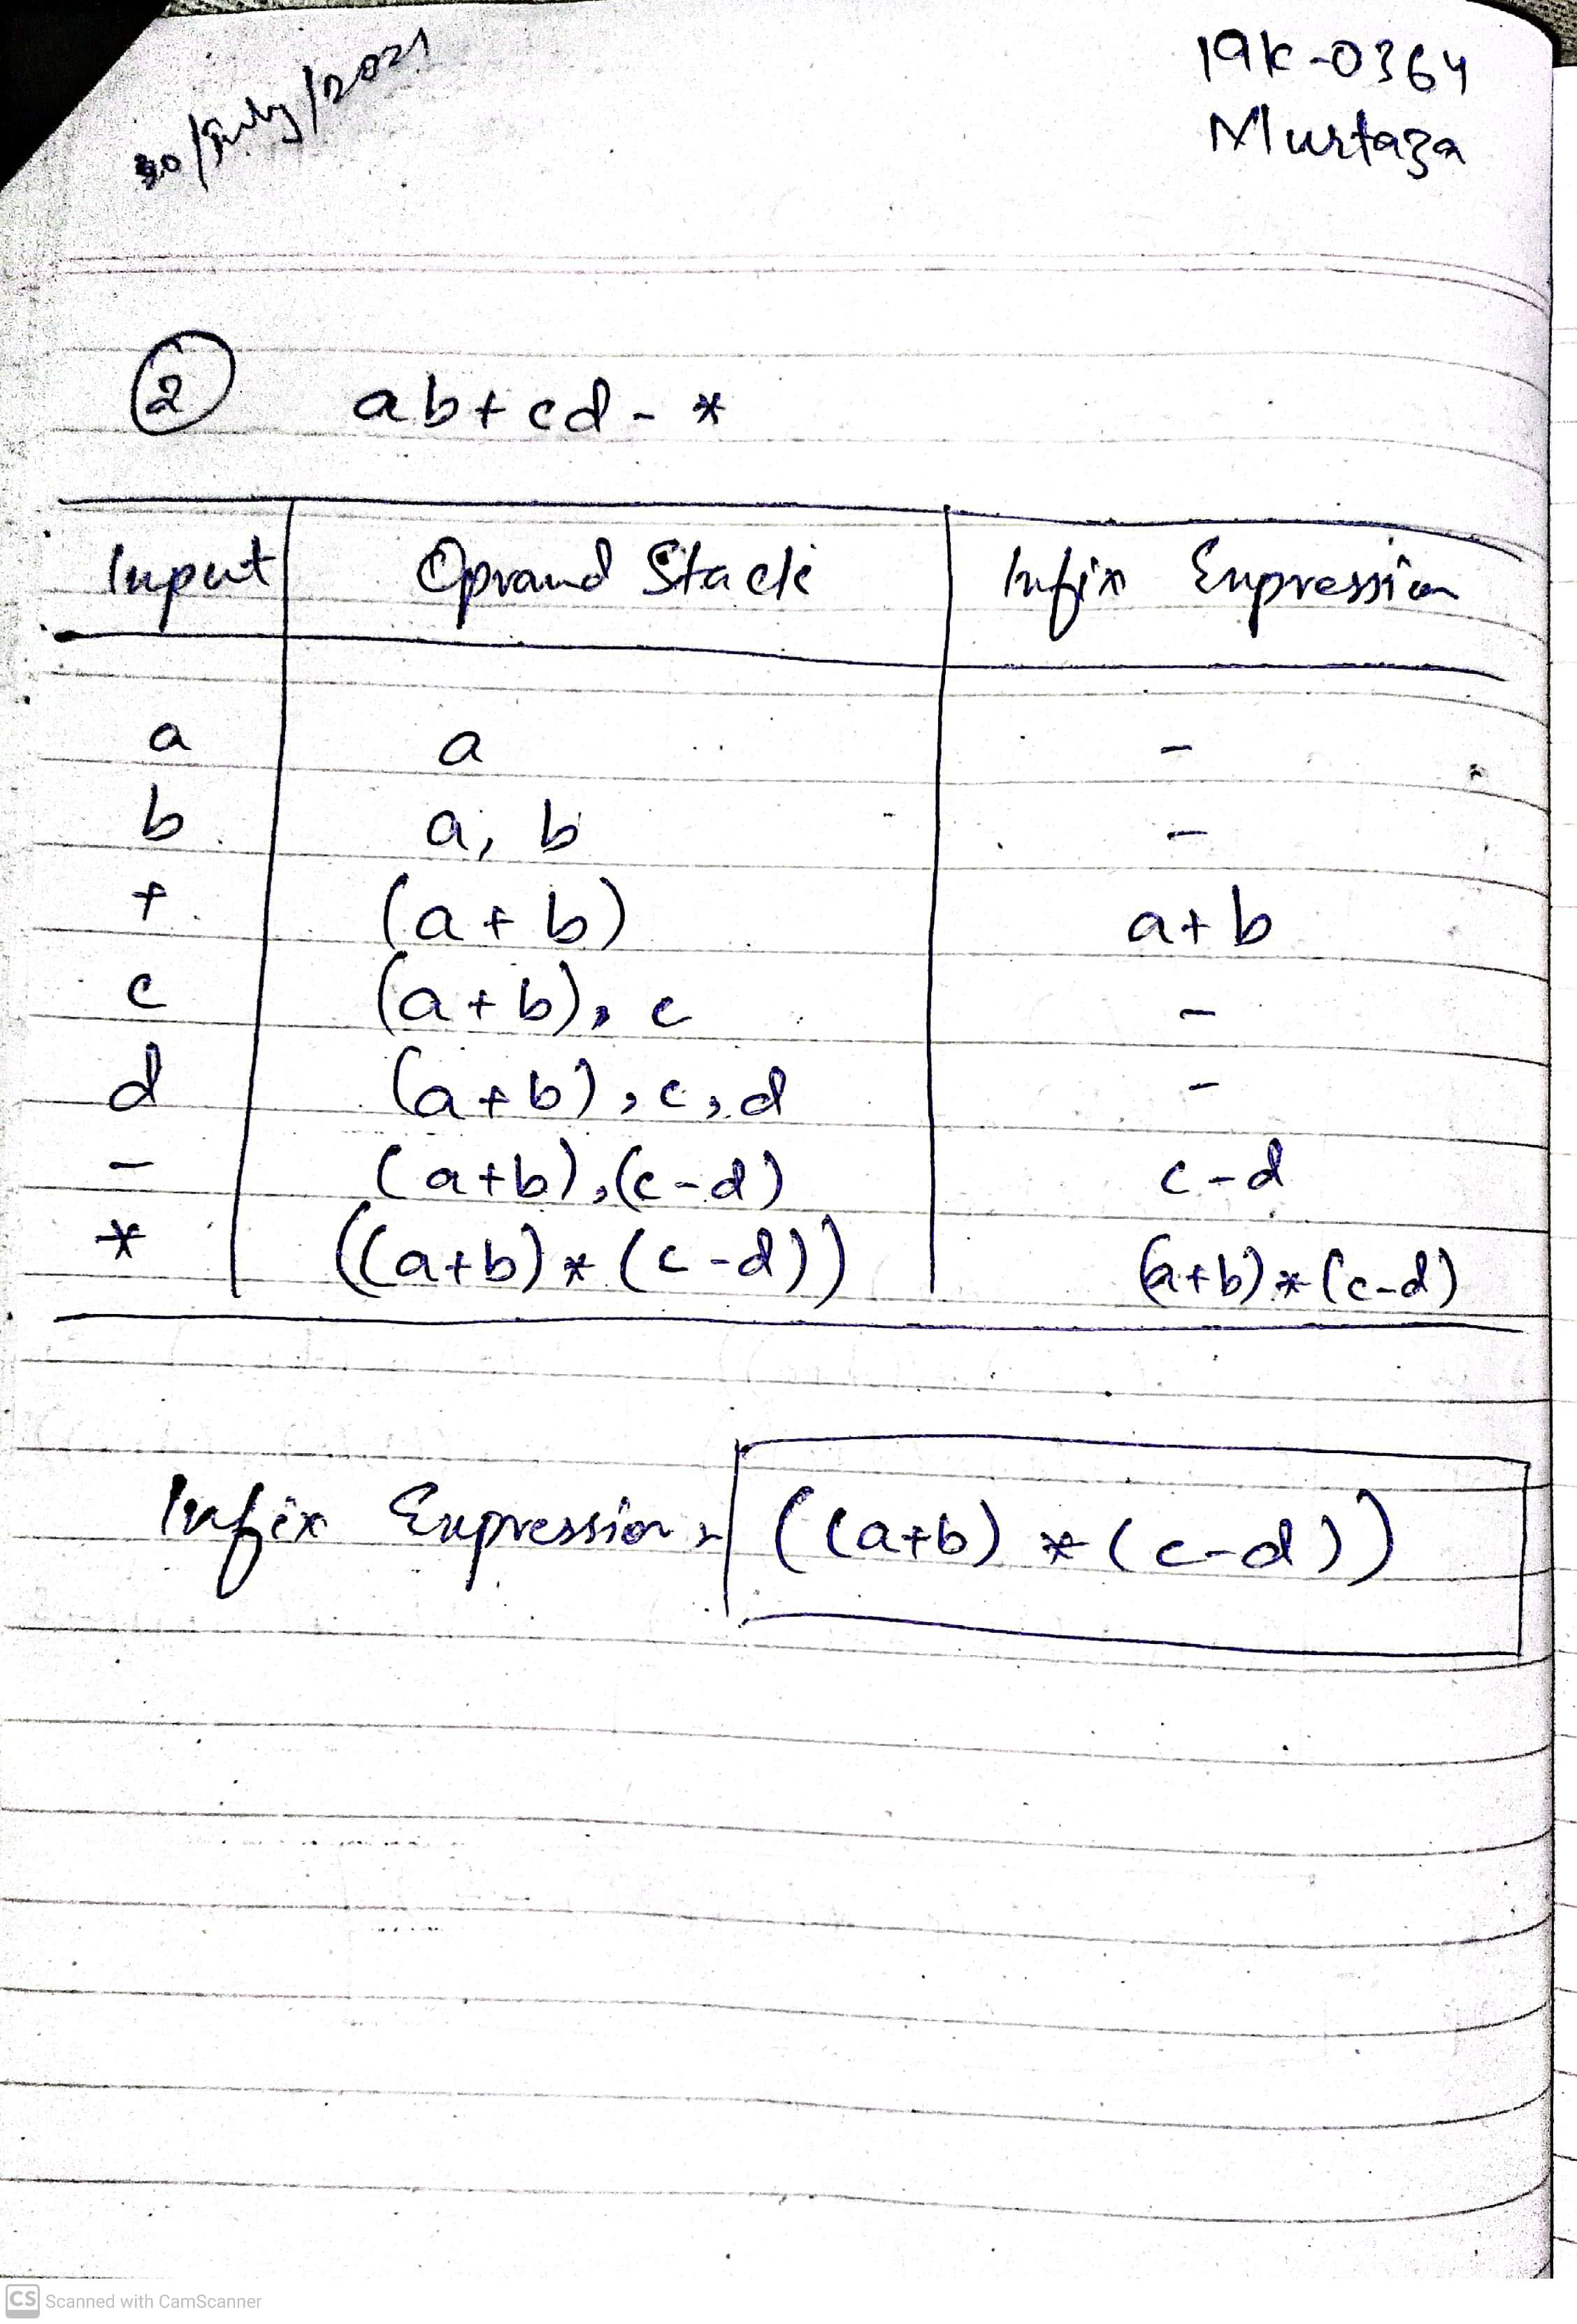 30/July/2021
19k-0364
Murtaza
2 ab+cd-*
Input Oprand Stack Infix Expression
a a -
b a, b -
+ (a+b) a+b
c (a+b), c -
d (a+b), c, d -
- (a+b), (c-d) c-d
* ((a+b)*(c-d)) (a+b)*(c-d)
Infix Expression = ((a+b) * (c-d))
CS Scanned with CamScanner